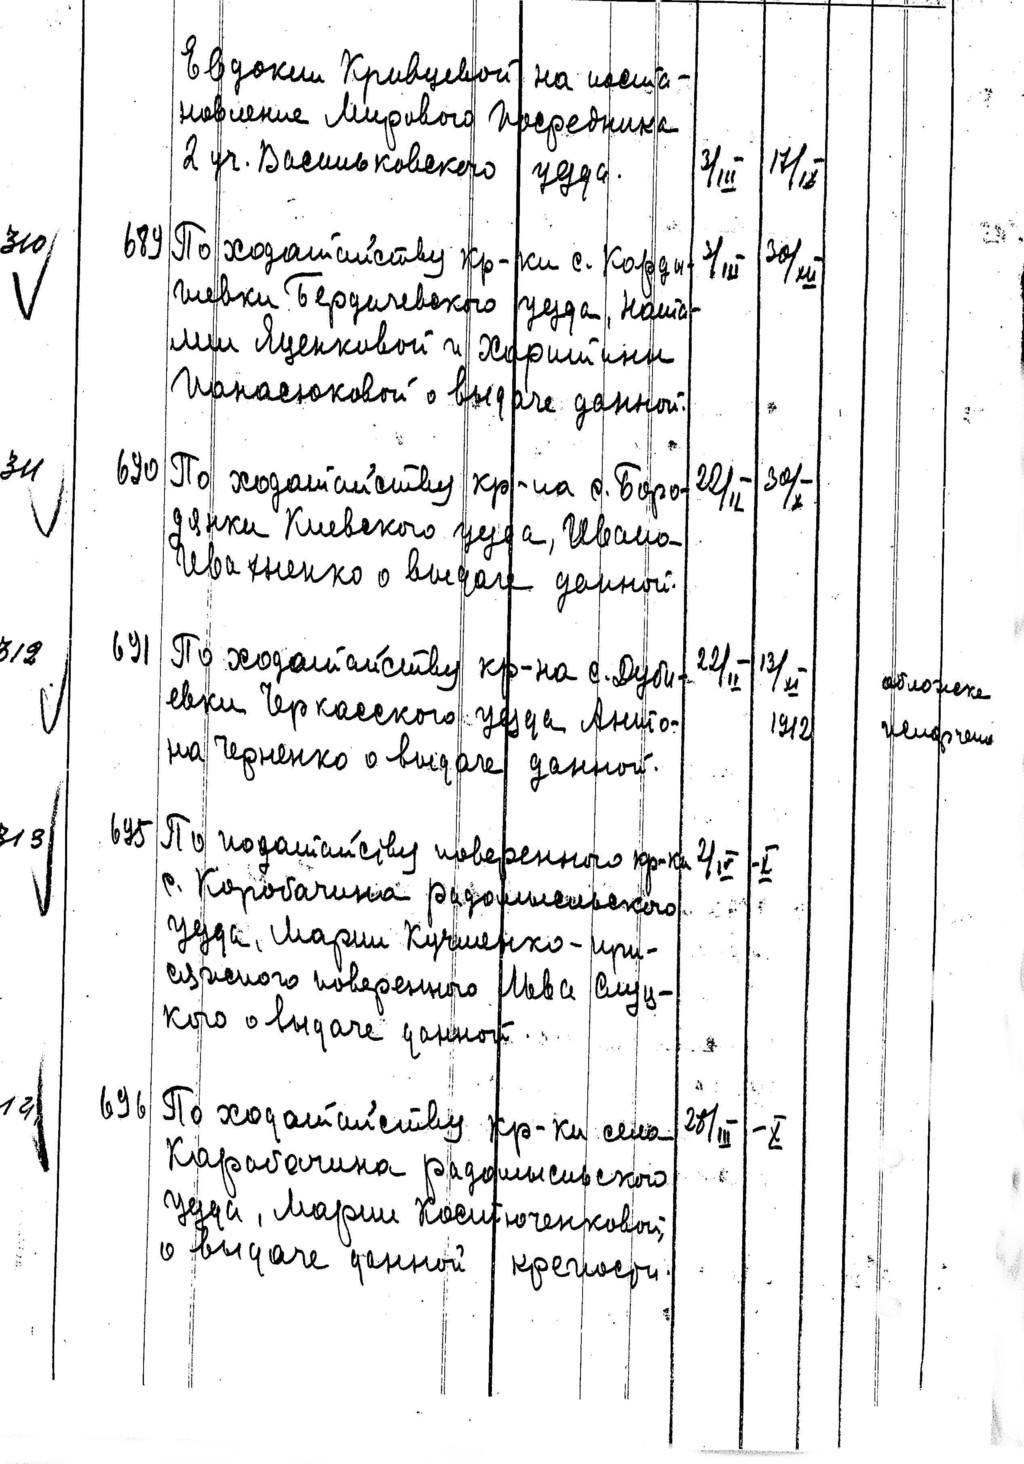 Евдокии Кривцевой на поста-
новление Мирового Посредника
2 уч. Васильковского уезда. 3/III 17/IX
310 689 По ходатайству кр-ки с. Корды- 3/III 30/XII
шевки Бердичевского уезда, Ната-
лии Яценковой и Харитини
Панасюковой о выдаче данной.
311 690 По ходатайству кр-на с. Боро- 22/II 30/X
дянки Киевского уезда, Ивана
Ивахненко о выдаче данной.
312 691 По ходатайству кр-на с. Дуби- 22/II 13/XI
евки Черкасского уезда Анто- 1912 обложке
на Черненко о выдаче данной.
313 695 По ходатайству поверенного кр-ки 2/IV -X
с. Коробачина радомысльского
уезда, Марии Кучменко - при-
сяжного поверенного Льва Слуц-
кого о выдаче данной.
14 696 По ходатайству кр-ки села 28/III -X
Карабачина радомысльского
уезда, Марии Костюченковой,
о выдаче данной крепости.